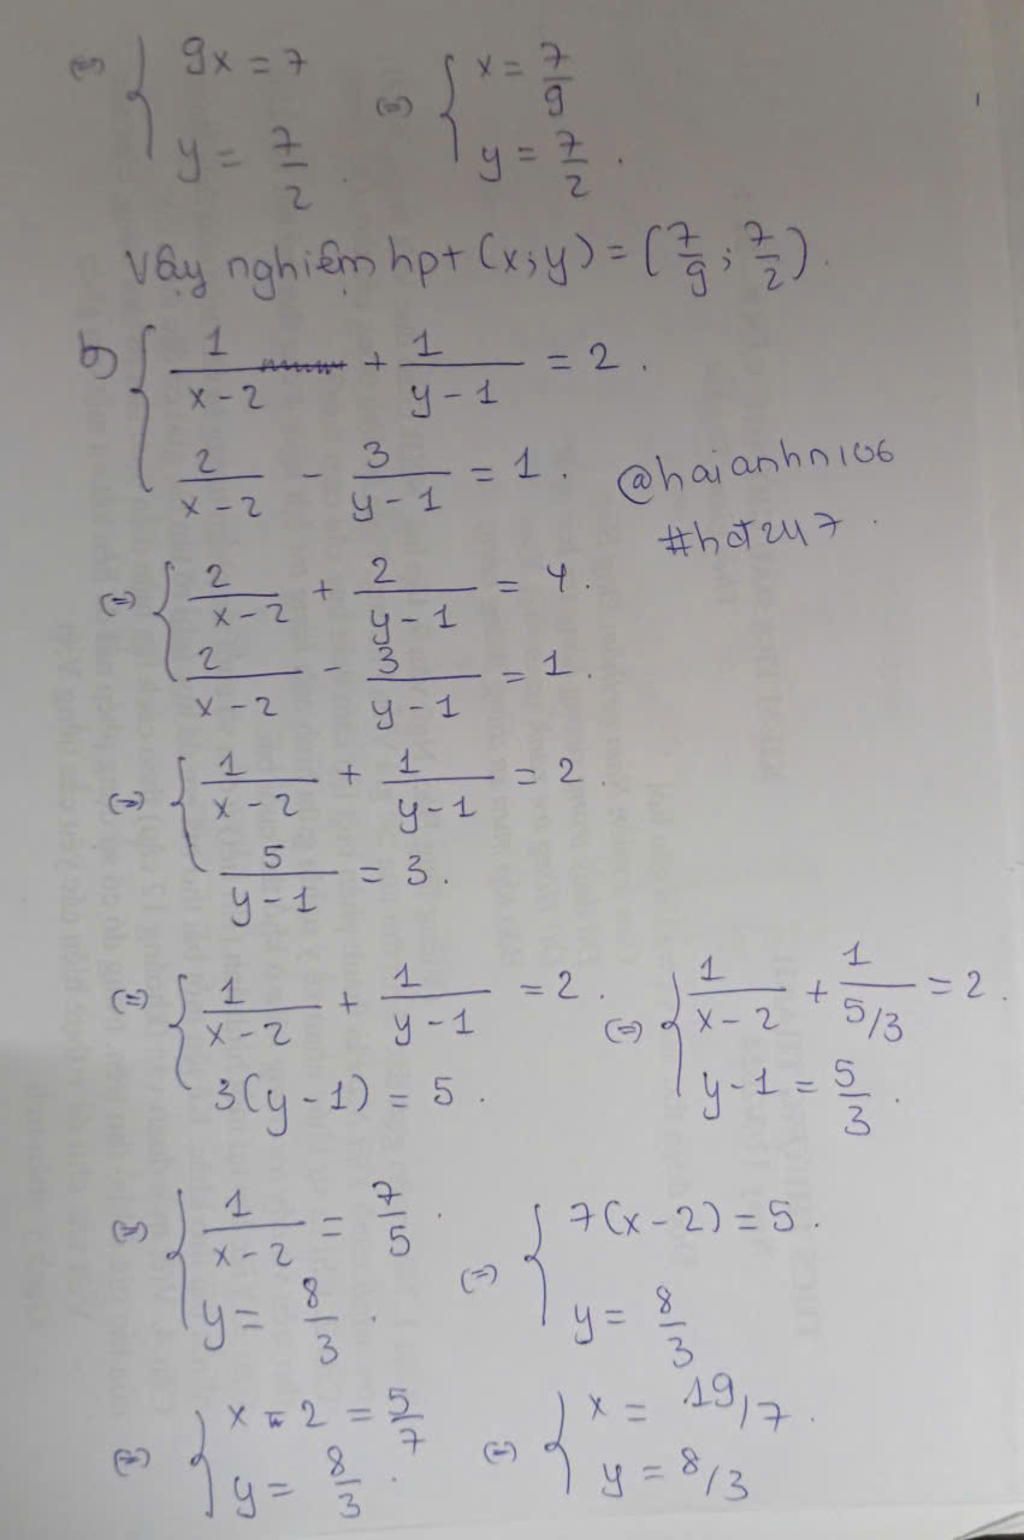 (=) { 9x = 7 ; y = 7/2 . (=) { x = 7/9 ; y = 7/2 .
Vậy nghiệm hpt (x;y) = (7/9 ; 7/2).
b) { 1/(x-2) + 1/(y-1) = 2 .
2/(x-2) - 3/(y-1) = 1 .
@haianhn106
#hdt247 .
(=) { 2/(x-2) + 2/(y-1) = 4 .
2/(x-2) - 3/(y-1) = 1 .
(=) { 1/(x-2) + 1/(y-1) = 2 .
5/(y-1) = 3 .
(=) { 1/(x-2) + 1/(y-1) = 2 . (=) { 1/(x-2) + 1/(5/3) = 2 .
3(y-1) = 5 . y-1 = 5/3 .
(=) { 1/(x-2) = 7/5 . (=) { 7(x-2) = 5 .
y = 8/3 . y = 8/3
(=) { x - 2 = 5/7 (=) { x = 19/7 .
y = 8/3 . y = 8/3